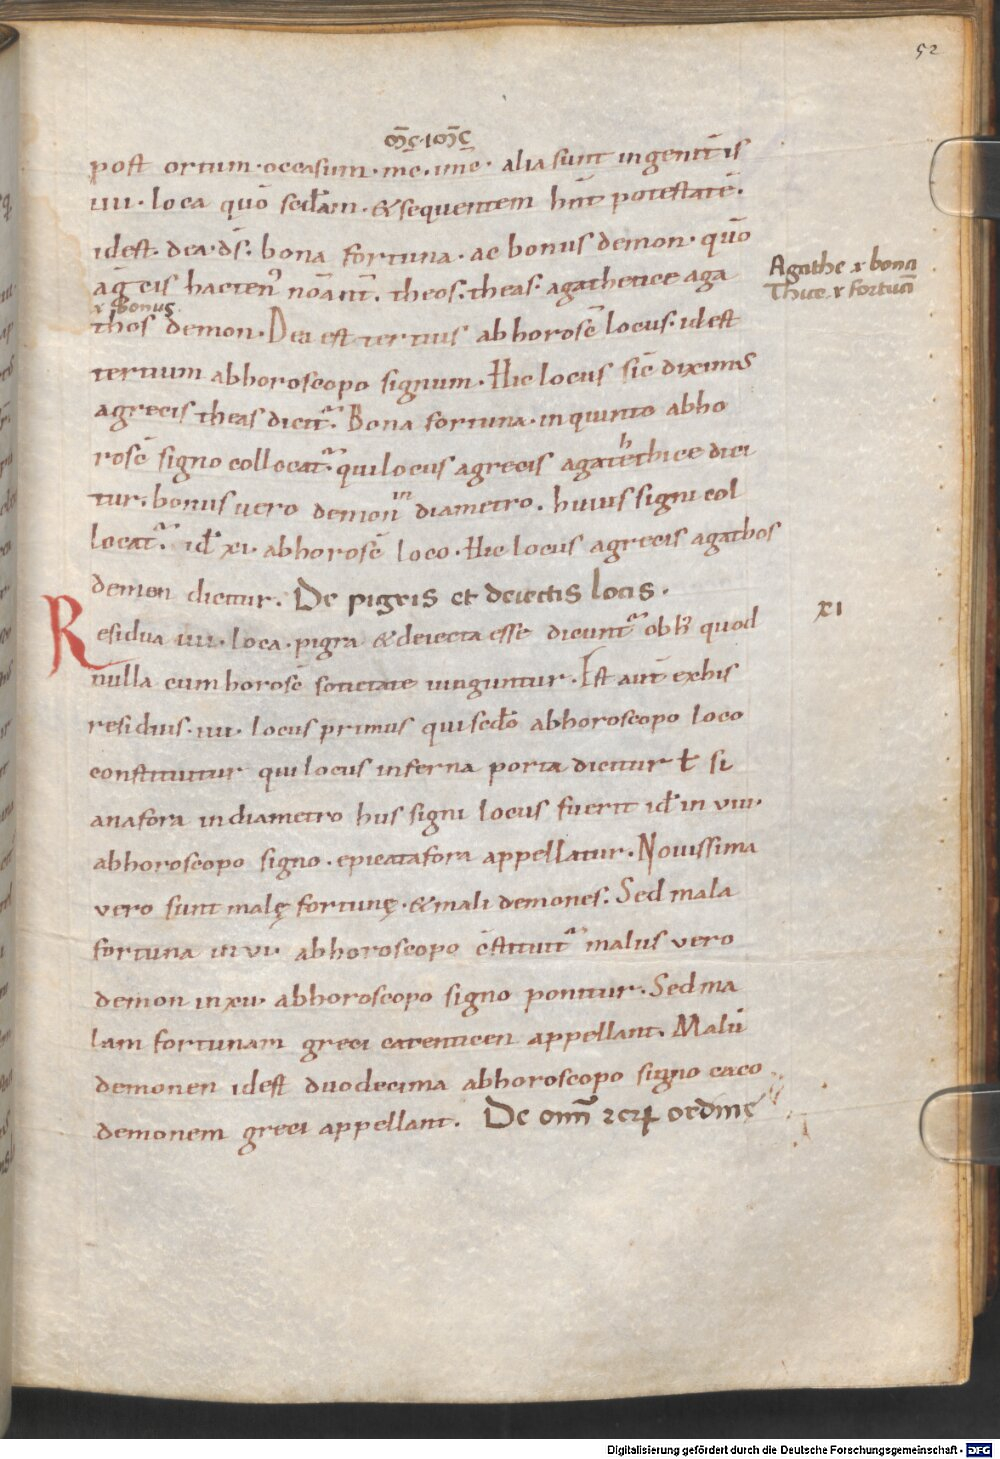 52
post ortum · occasum · mc̄ · imc̄ · alia sunt in genit̄ is
IIII · loca quō sed̄am · & sequentem hn̄t potestatē ·
id est · dea · ds̄ · bona fortuna · ac bonus demon · quō
Agathe
bona
Thice
fortuna
bonus
thos demon · Dei est tertius ab horosc̄ locus · id est
tertium ab horoscopo signum · Hic locus sic̄ diximus
agrecis theas dicit᷑ · Bona fortuna · in quinto abho
rosc̄ signo collocat᷑ · qui locus agrecis agatethice dici
tur · bonus vero demon in diametro · huius signi col
locat᷑ · id̄ XI · ab horosc̄ loco · Hic locus agrecis agathos
demon dicitur · De pigris et deiectis locis ·
XI
Residua IIII · loca · pigra & deiecta esse dicunt᷑ ob h̄ quod
nulla cum horosc̄ societate iunguntur · Est aut̄ ex his
residuis · IIII · locus primus qui sed̄o ab horoscopo loco
constituitur qui locus inferna porta dicitur ł si
anafora in diametro hus signi locus fuerit id̄ in VIII ·
ab horoscopo signo · epicatafora appellatur · Novissima
vero sunt malę fortunę · & mali demones · Sed mala
fortuna in VI · ab horoscopo c̄stituit᷑ malus vero
demon in XII · ab horoscopo signo ponitur · Sed ma
lam fortunam greci catenticen appellant · Malū
demonen id est duodecima ab horoscopo signo caco
demonem greci appellant · De
Digitalisierung gefördert durch die Deutsche Forschungsgemeinschaft - DFG